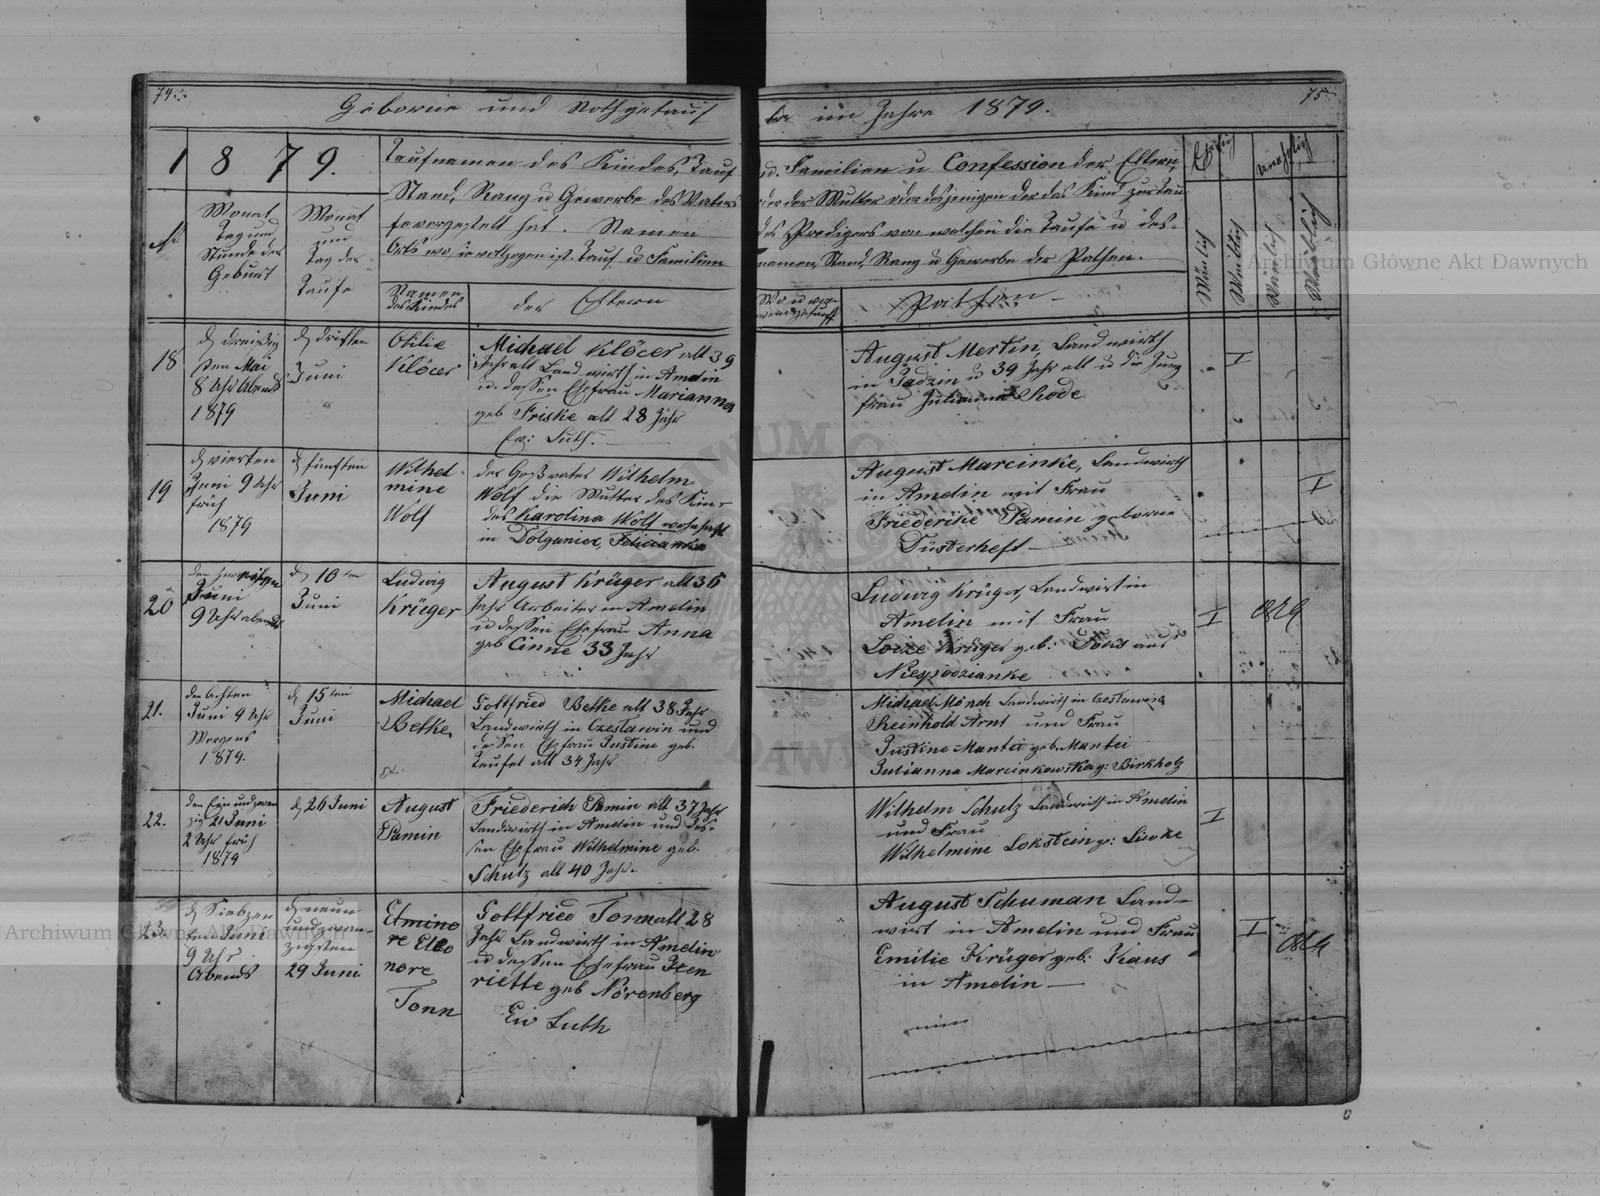 74.
Geborne und Nothgetauf
te im Jahre 1879.
75.
1 8 7 9.
Taufnamen des Kindes, Tauf
u. Familien u Confession der Eltern,
Stand, Rang u Gewerbe des Vaters
oder der Mutter oder desjenigen der das Kind zur Tau
fe vorgestellt hat. Namen
des Predigers von welchen die Taufe u des
Orts wo sie vollzogen ist. Tauf u Familien
namen, Stand, Rang u Gewerbe der Pathen.
№
Monat
Tag und
Stunde der
Geburt
Monat
und
Tag der
Taufe
Namen
des Kindes
der Eltern
Wo u von
wem getauft
Pathen
Ehelich
Unehelich
Mänlich
Weiblich
Mänlich
Weiblich
18
d dreißig
sten Mai
8 Uhr Abends
1879
d dritten
Juni
Otilie
Klöcer
Michael Klöcer alt 39
Jahr alt Landwirth in Amelin
u. dessen Ehefrau Marianna
geb Friske alt 28 Jahr
Ev: Luth.
August Mertin, Landwirth
in Jadzin u 39 Jahr alt u die Jung
frau Julianna Rode
I
19
d vierten
Juni 9 Uhr
früh
1879
d fünften
Juni
Wilhel
mine
Wolf
der Großvater Wilhelm
Wolf die Mutter des Kin-
des Karolina Wolf wohnhaft
in Dolganiec, Felicianka
August Marcinke, Landwirth
in Amelin mit Frau
Friederike Pamin geborne
Düsterheft
I
20
den zwanzigsten
Juni
9 Uhr abends
d 10ten
Juni
Ludwig
Krüger
August Krüger alt 36
Jahr Arbeiter in Amelin
u dessen Ehefrau Anna
geb Cinne 33 Jahr
Ludwig Krüger, Landwirt in
Amelin mit Frau
Loize Krüger geb: aus
Niespodzianke
I
21.
den achten
Juni 9 Uhr
Morgens
1879.
d 15ten
Juni
Michael
Betke,
Gottfried Betke alt 38 Jahr
Landwirth in Czestawin und
dessen Ehefrau Justine geb.
Teufel alt 34 Jahr
Michael Mönch Landwirth in
Reinhold Arnt und Frau
Justine Mantei geb. Mantei
Julianna Marcinkowska g: Birkholz
22.
den Ein und zwan
zig 21 Juni
2 Uhr früh
1879
d 26 Juni
August
Pamin
Friederich Pamin alt 37 Jahr
Landwirth in Amelin und des-
sen Ehefrau Wilhelmine geb.
Schulz alt 40 Jahr.
Wilhelm Schulz Landwirth in Amelin
und Frau
Wilhelmine Lokstein g:
I
23.
d Siebzen
ten Juni
9 Uhr
Abends
d neun
und zwan-
zigsten
29 Juni
Elmino
re Eleo
nore
Tonn
Gottfried Tonn alt 28
Jahr Landwirth in Amelin
u dessen Ehefrau Hen
riette geb Nörenberg
Ew Luth
August Schuman Land-
wirt in Amelin und Frau
Emilie Krüger geb: Kaus
in Amelin
I
Archiwum Główne Akt Dawnych
Archiwum Główne Akt Dawnych